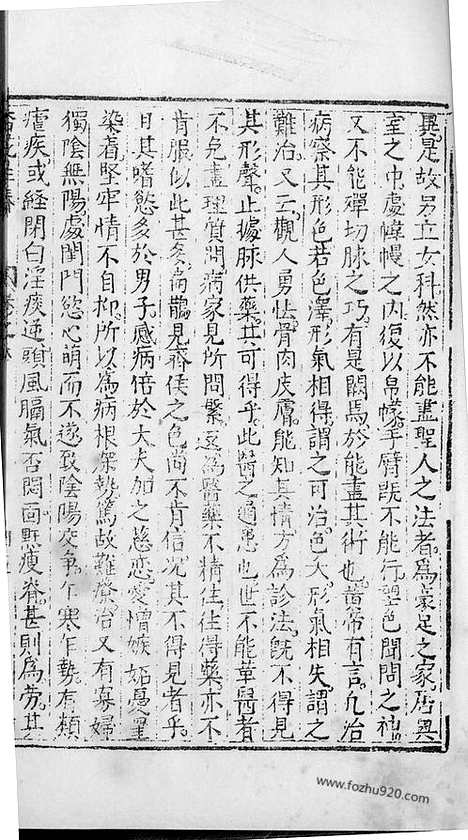 異是故另立女科然亦不能盡聖人之法者為豪足之家居奥
室之中處幃幔之内復以帛幪手臂既不能行望色聞問之神
又不能殫切脉之巧有是闕焉於能盡其術也黄帝有言凡治
病察其形色若色澤形氣相得謂之可治色夭形氣相失謂之
難治又云觀人勇怯骨肉皮膚能知其情方為診法既不得見
其形聲止據脉供藥其可得乎此醫之通患也世不能革醫者
不免盡理質問病家見所問繁逺為醫藥不精往往得藥亦不
肯服似此甚多扁鵲見齊侯之色尚不肯信况其不得見者乎
且其嗜慾多於男子感病倍於丈夫加之慈恋愛憎嫉妬憂
染着堅牢情不自抑所以為病根深勢篤故難療治又有寡婦
獨陰無陽處閨門慾心萌而不遂致陰陽交爭乍寒乍勢有類
瘧疾或經閉白淫痰逆頭風膈氣否悶面痩脊甚則為劳其
卷之
www.fozhu920.com